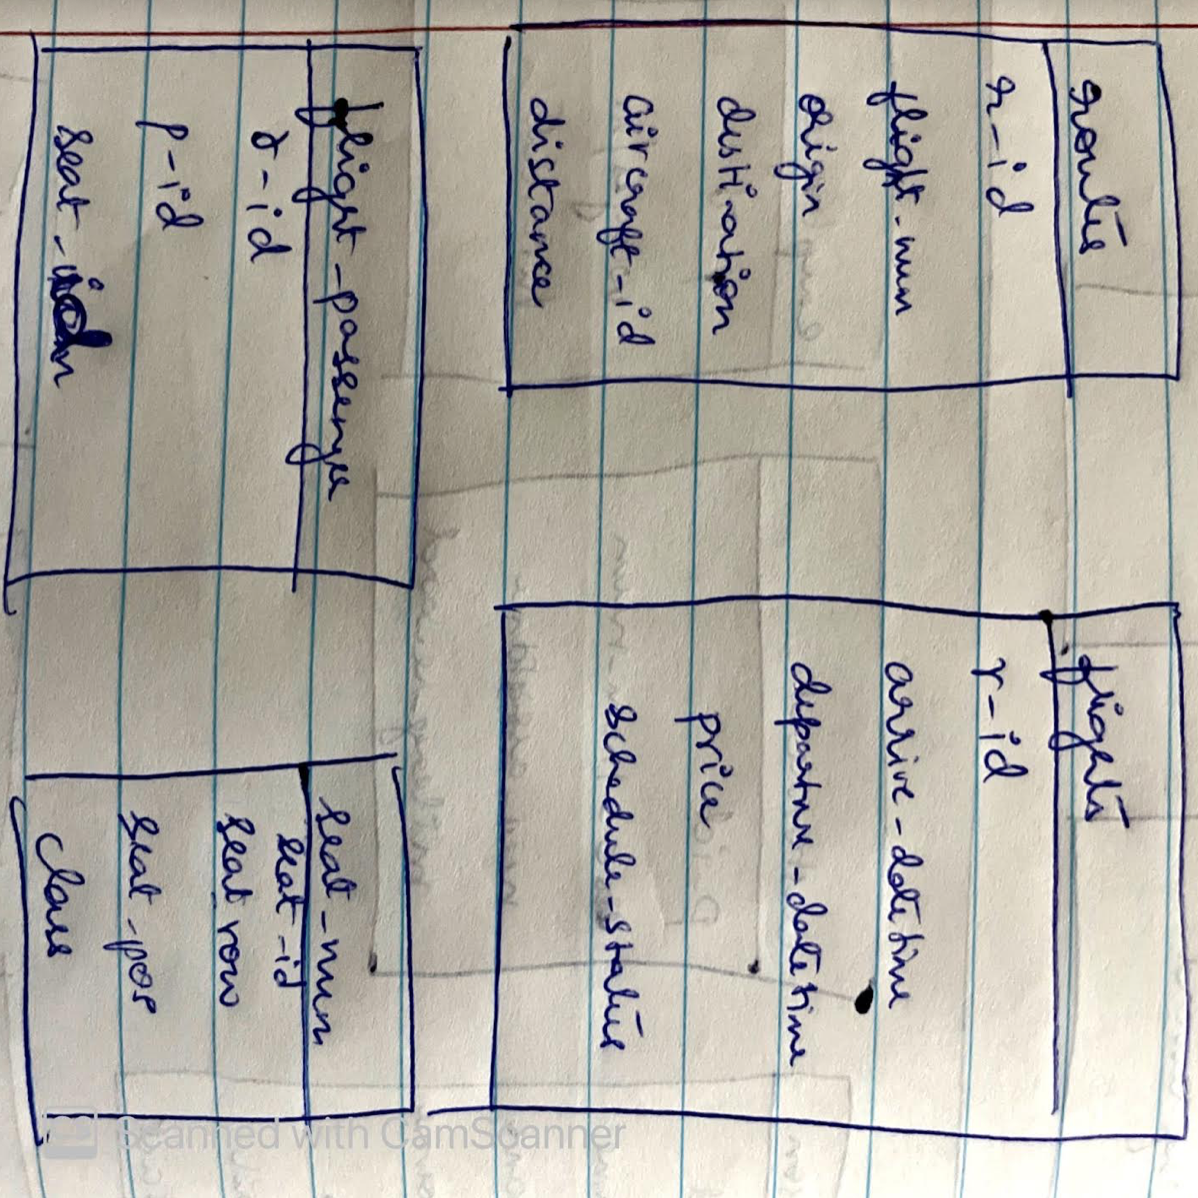 routes
r-id
flight-num
origin
destination
aircraft-id
distance
flights
r-id
arrive-datetime
departure-datetime
price
schedule-status
flight-passenger
r-id
p-id
seat-
seat-num
seat-id
seat row
seat-pos
class
Scanned with CamScanner